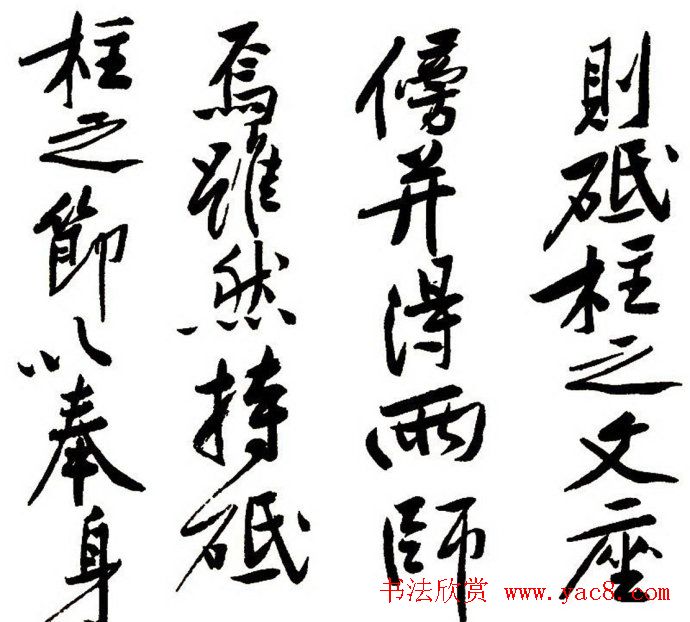 則砥柱之文座
傍并得兩師
焉雖然持砥
柱之節以奉身
书法欣赏 www.yac8.com